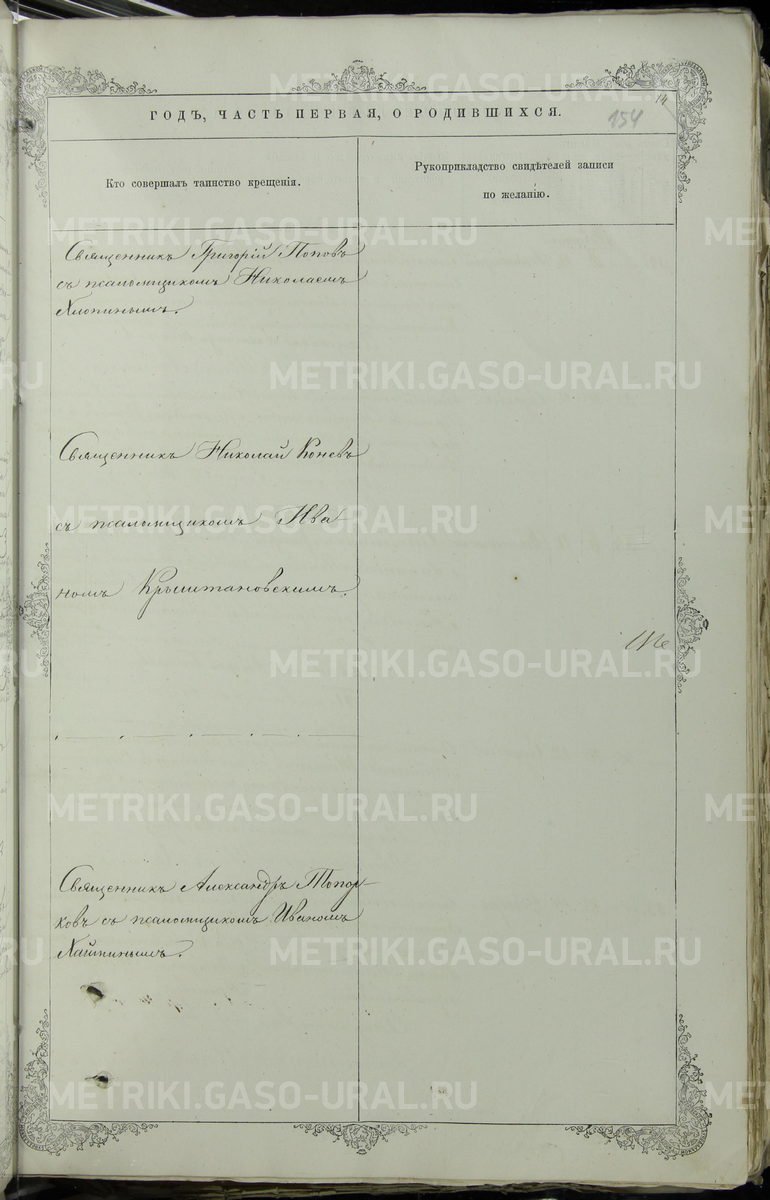 14
154
ГОДЪ, ЧАСТЬ ПЕРВАЯ, О РОДИВШИХСЯ.
Кто совершалъ таинство крещенія.
Рукоприкладство свидѣтелей записи
по желанію.
Священникъ Григорій Поповъ
съ псаломщикомъ Николаемъ
Хлопинымъ.
Священникъ Николай Коневъ
съ псаломщикомъ Ива
номъ Крыштановскимъ.
Священникъ Александръ Топор-
ковъ съ псаломщикомъ Иваномъ
METRIKI.GASO-URAL.RU